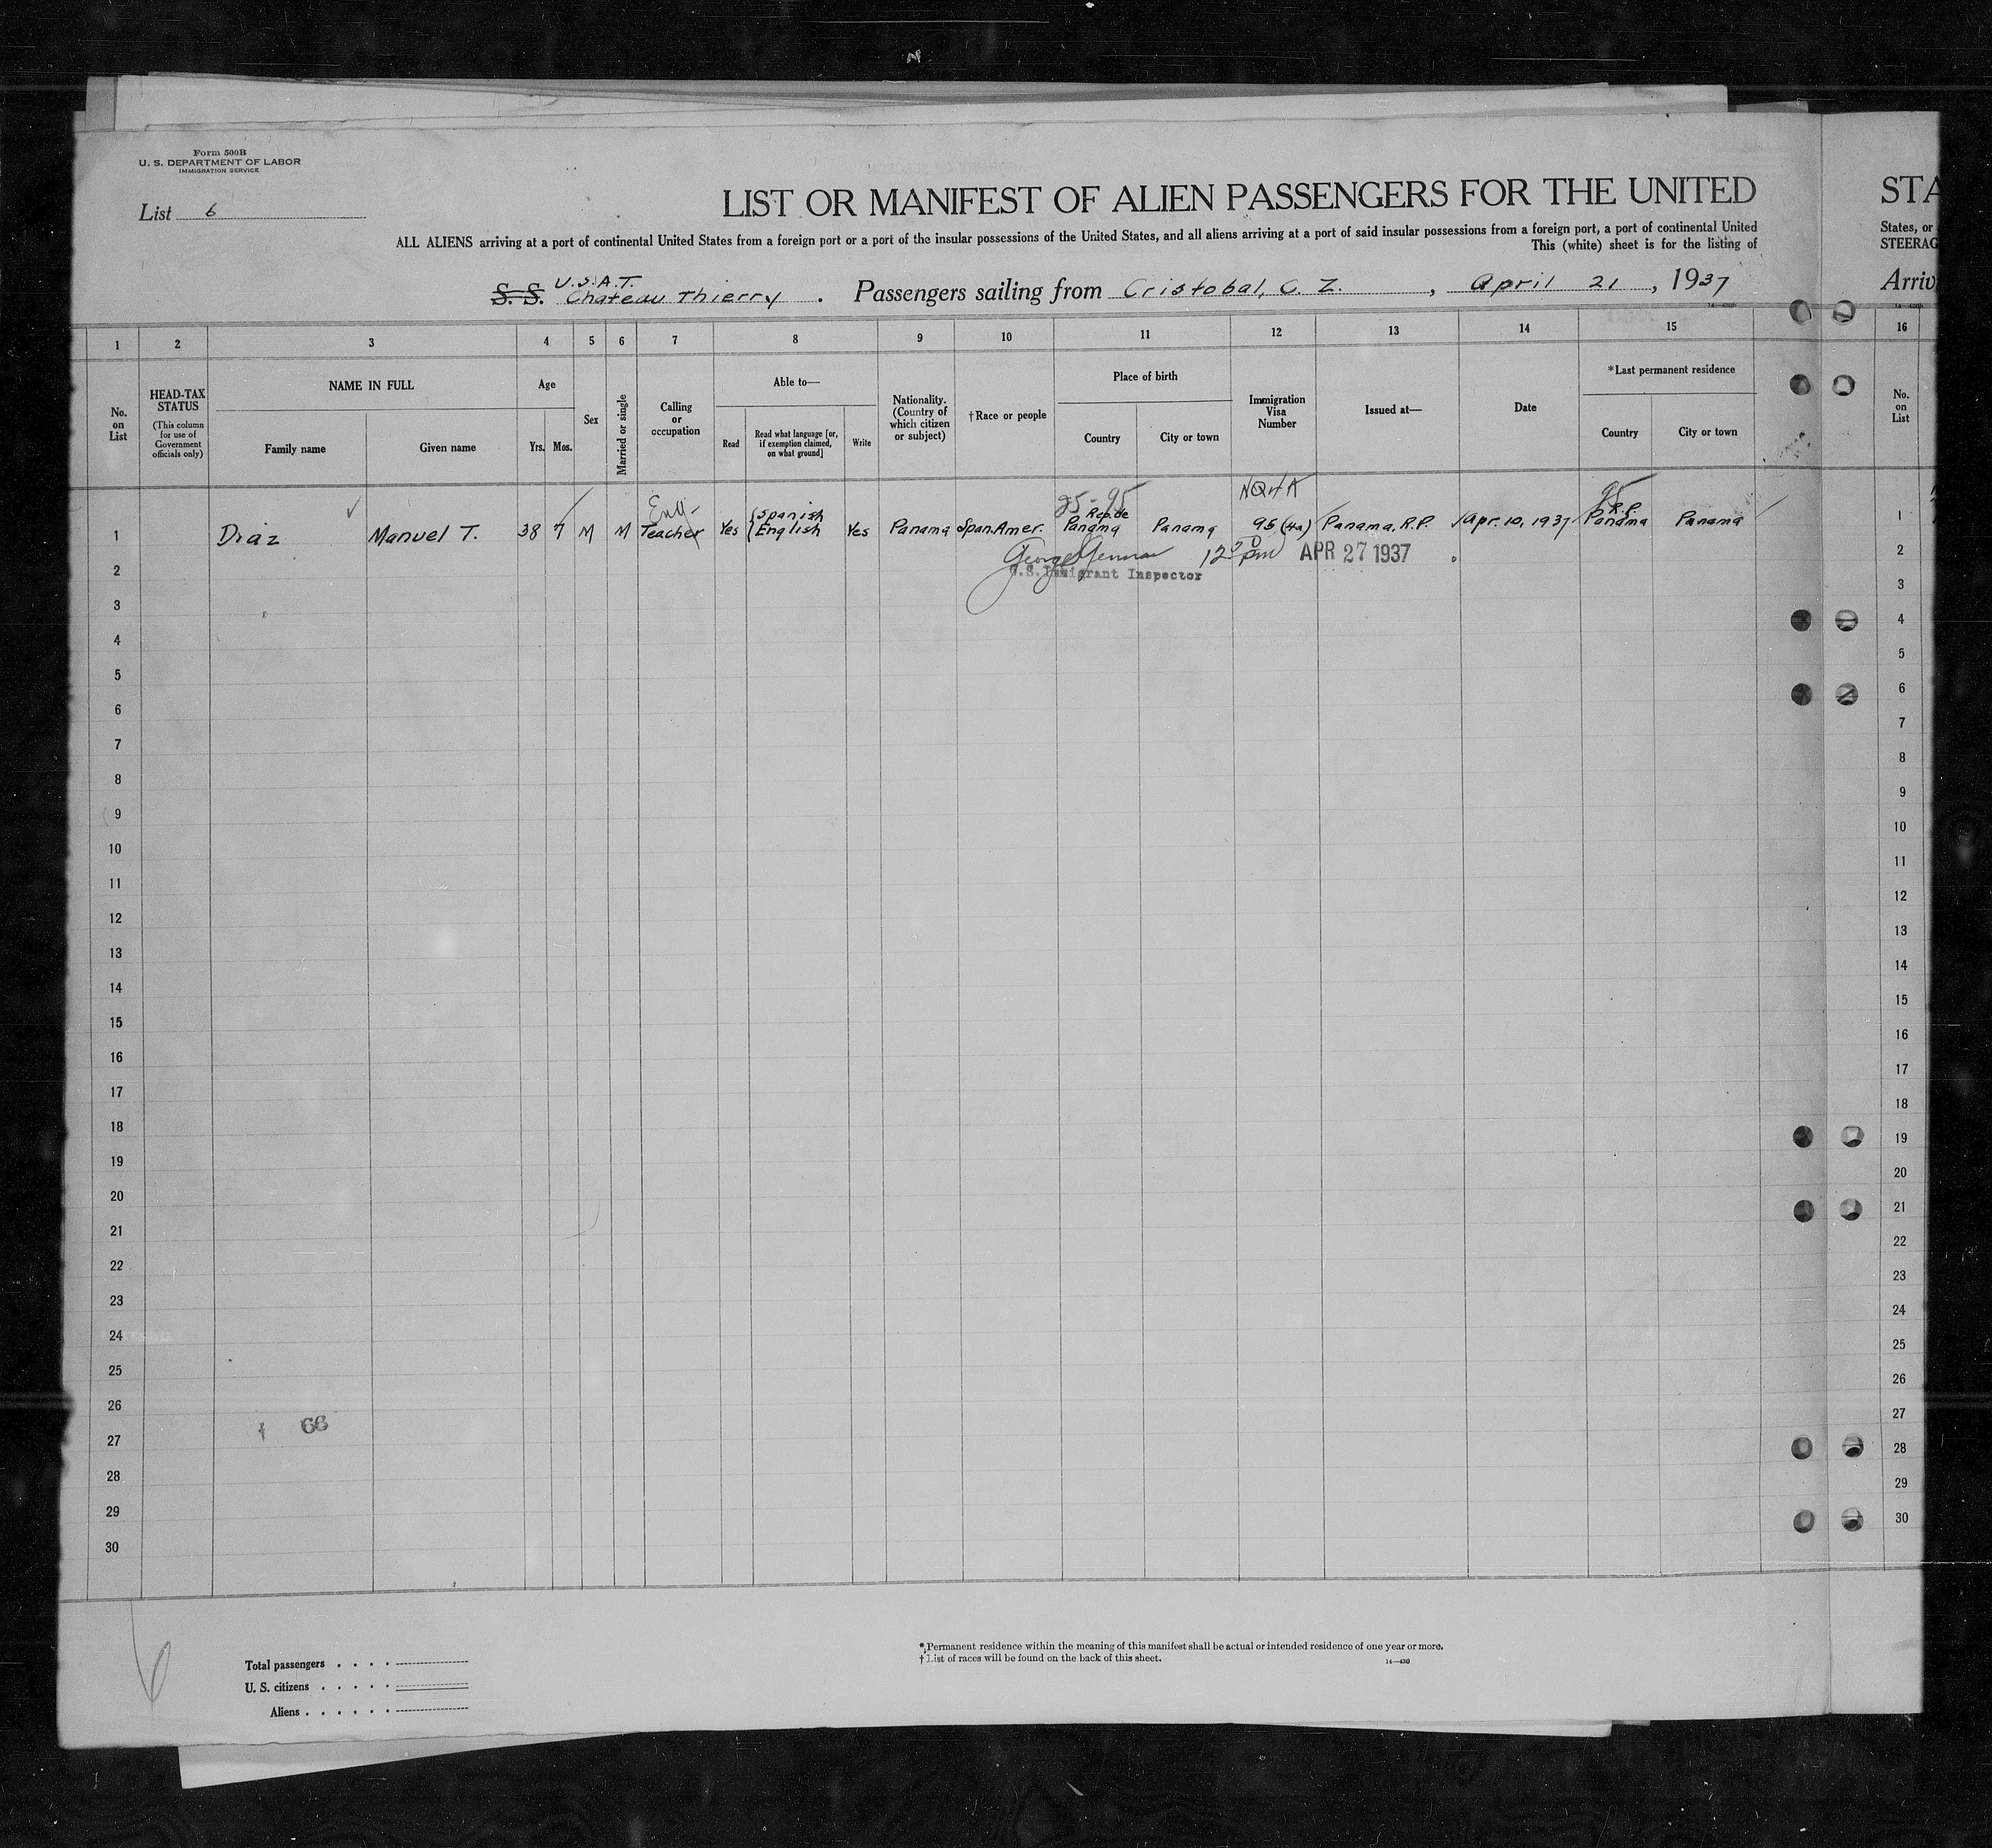 Form 500B
U. S. DEPARTMENT OF LABOR
IMMIGRATION SERVICE
List 6
LIST OR MANIFEST OF ALIEN PASSENGERS FOR THE UNITED
STA
ALL ALIENS arriving at a port of continental United States from a foreign port or a port of the insular possessions of the United States, and all aliens arriving at a port of said insular possessions from a foreign port, a port of continental United
States, or
This (white) sheet is for the listing of
STEERAG
S. S. U.S.A.T. Chateau Thierry . Passengers sailing from Cristobal, C. Z. , April 21 , 1937
Arriv
1 2 3 4 5 6 7 8 9 10 11 12 13 14 15 16
No. on List
HEAD-TAX STATUS
(This column for use of Government officials only)
NAME IN FULL
Family name
Given name
Age
Yrs.
Mos.
Sex
Married or single
Calling or occupation
Able to—
Read
Read what language [or, if exemption claimed, on what ground]
Write
Nationality. (Country of which citizen or subject)
†Race or people
Place of birth
Country
City or town
Immigration Visa Number
Issued at—
Date
*Last permanent residence
Country
City or town
No. on List
25-95
NQ4A
95
1 Diaz Manuel T. 38 7 M M Teacher Yes {Spanish English Yes Panama Span.Amer. Rep.de Panama Panama 95 (4a) Panama, R.P. Apr. 10, 1937 R.P. Panama Panama 1
APR 27 1937
U.S. Immigrant Inspector
2 2
3 3
4 4
5 5
6 6
7 7
8 8
9 9
10 10
11 11
12 12
13 13
14 14
15 15
16 16
17 17
18 18
19 19
20 20
21 21
22 22
23 23
24 24
25 25
26 26
66
27 27
28 28
29 29
30 30
Total passengers
U. S. citizens
Aliens
*Permanent residence within the meaning of this manifest shall be actual or intended residence of one year or more.
†List of races will be found on the back of this sheet.
14—430